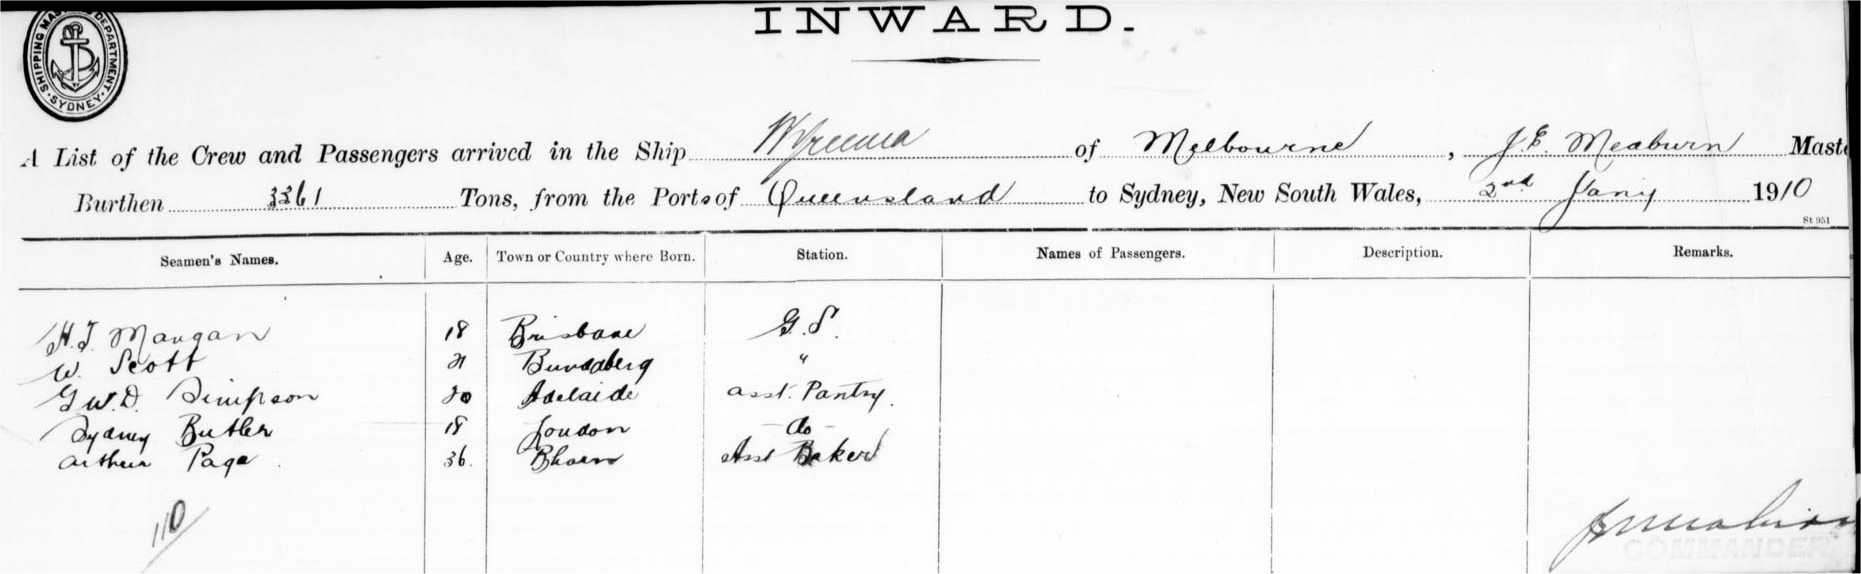 SHIPPING MASTER'S DEPARTMENT SYDNEY
INWARD.
A List of the Crew and Passengers arrived in the Ship Wyreema of Melbourne, J.E. Meaburn Maste
Burthen 3361 Tons, from the Ports of Queensland to Sydney, New South Wales, 2nd Jany 1910
St 951
Seamen's Names. Age. Town or Country where Born. Station. Names of Passengers. Description. Remarks.
H.J. Mangan 18 Brisbane G.S.
W. Scott 21 Bundaberg "
G.W.D. Simpson 20 Adelaide asst. Pantry.
Sydney Butler 18 London - do -
Arthur Page 36. Asst Baker
110
COMMANDER